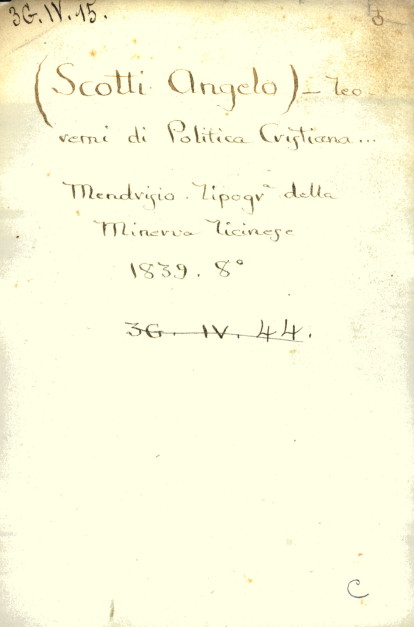 3G. IV. 15.
(Scotti Angelo) – Teo-
remi di Politica Cristiana...
Mendrisio. Tipogr.ª della
Minerva Ticinese
1839. 8°
3G. IV. 44.
C